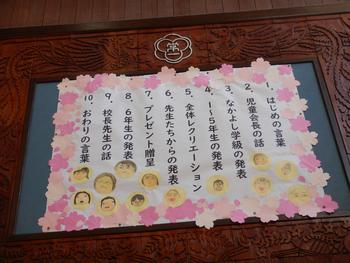 常一
1．はじめの言葉
2．児童会長の話
3．なかよし学級の発表
4．1～5年生の発表
5．全体レクリエーション
6．先生たちからの発表
7．プレゼント贈呈
8．6年生の発表
9．校長先生の話
10．おわりの言葉